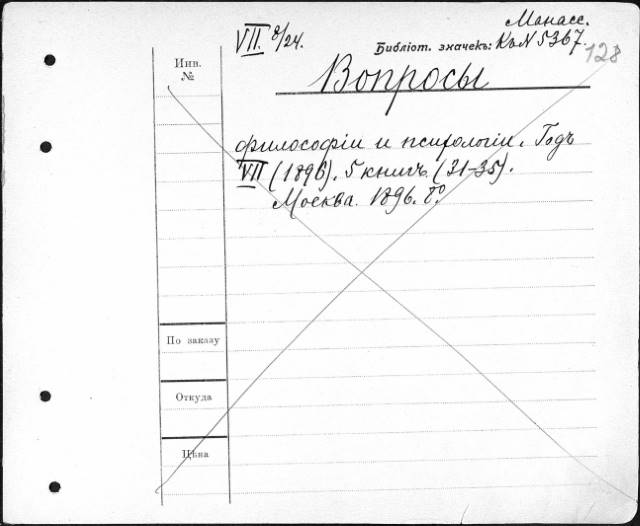 Манасс.
VII. 8/24.
Библіот. значекъ: Къ N 5367.
128
Инв.
№
Вопросы
философіи и психологіи. Годъ
VII (1896). 5 книгъ. (31-35).
Москва. 1896. 8º
По заказу
Откуда
Цѣна